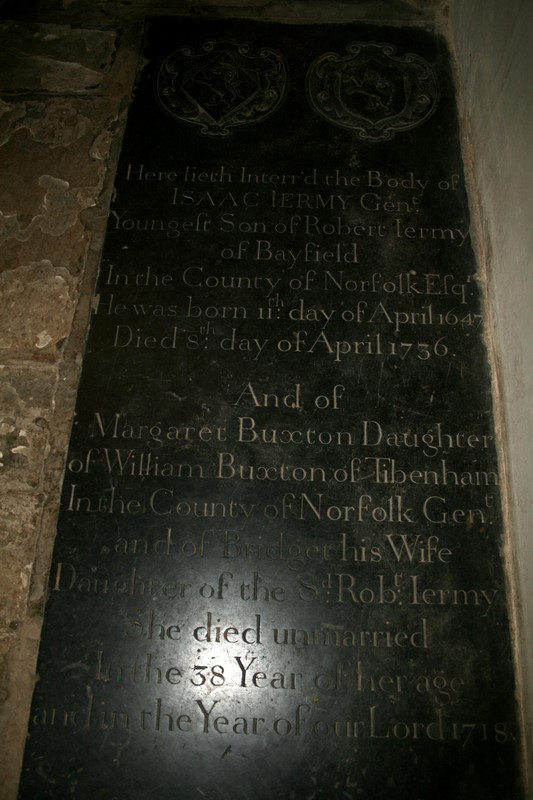 Here lieth Interr'd the Body of
ISAAC IERMY Gent.
Youngest Son of Robert Iermy
of Bayfield
In the County of Norfolk Esqr.
He was born 11th. day of April 1647
Died 8th. day of April 1736.
And of
Margaret Buxton Daughter
of William Buxton of Tibenham
In the County of Norfolk Gent.
and of Bridget his Wife
Daughter of the Sd. Robt. Iermy
She died unmarried
In the 38 Year of her age
and in the Year of our Lord 1718.